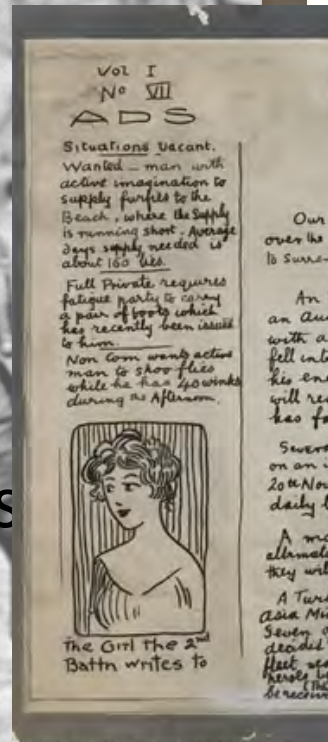 Vol I
No VII
ADS
Situations Vacant.
Wanted – man with
active imagination to
supply furfies to the
Beach, where the Supply
is running short. Average
days supply needed is
about 160 lies.
Full Private requires
fatigue party to carry
a pair of boots which
has recently been issued
to him.
Non Com wants active
man to shoo flies
while he has 40 winks
during the Afternoon.
The Girl the 2nd
Battn writes to
Our
over the
to Surre
An
an Au
with a
fell int
his en
will re
has fa
Severa
on an
20th Nov
daily b
A ma
they wil
A Tur
Asia Mi
Seven
decided
fleet
be receiv
S